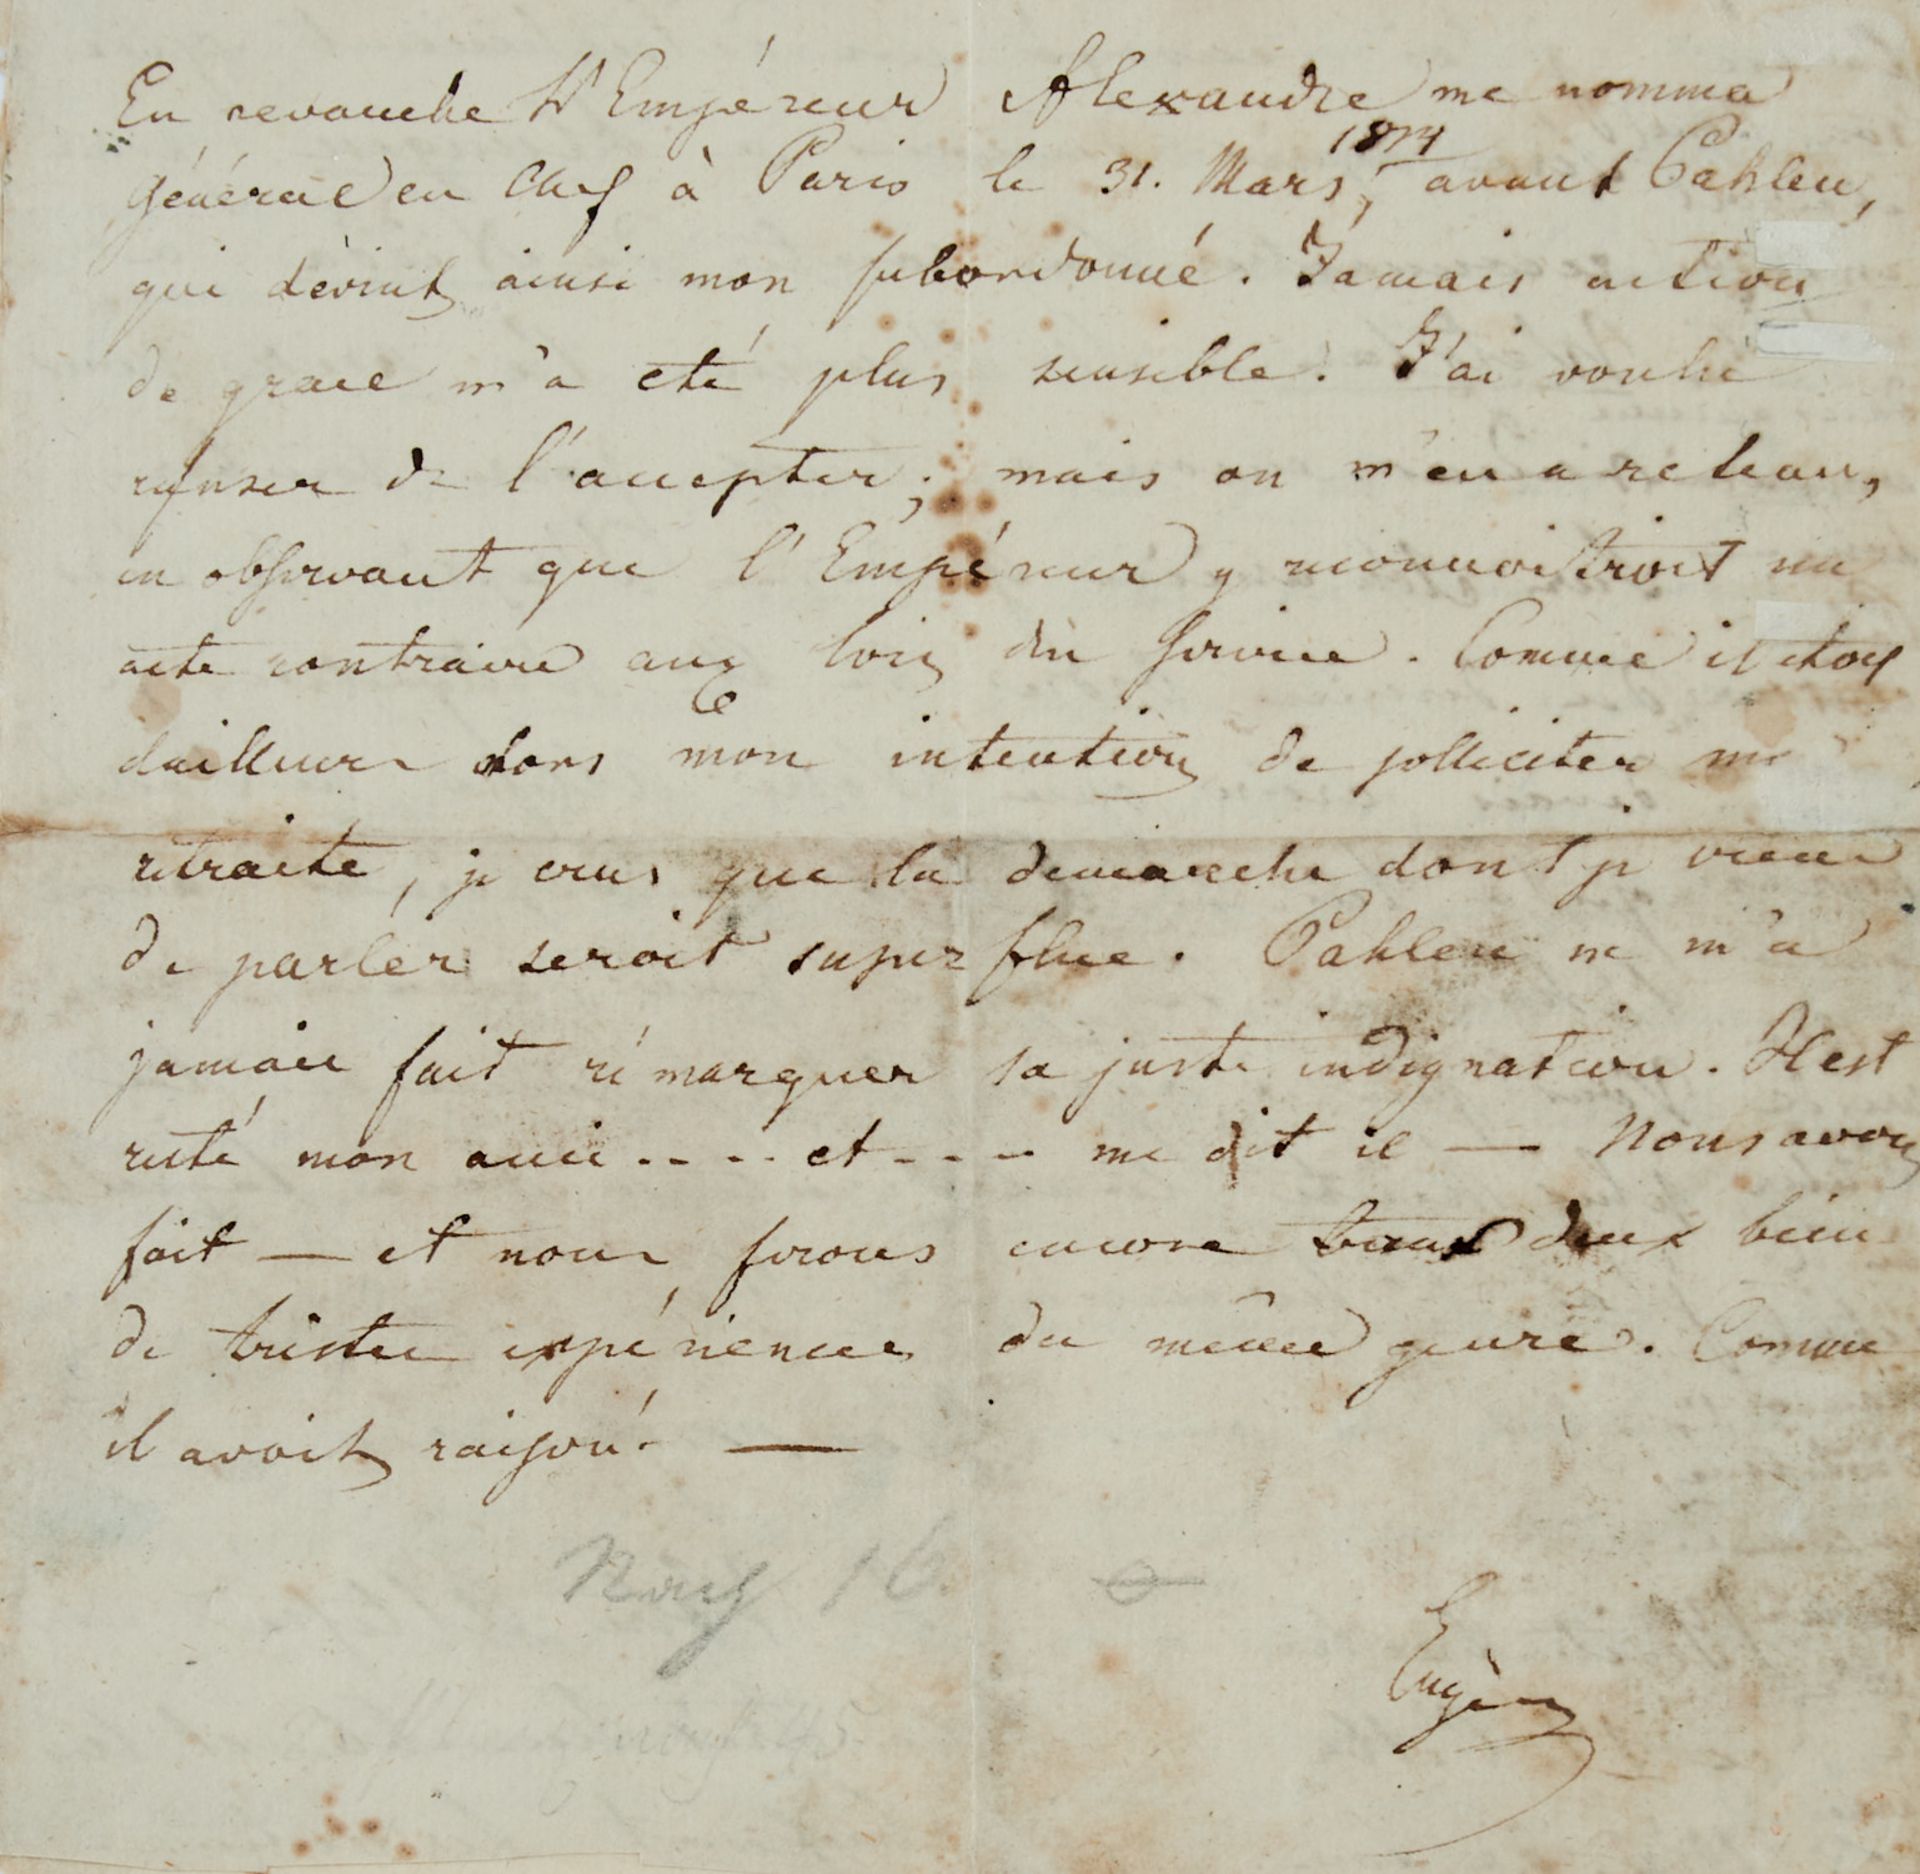 En revanche l'Empéreur Alexandre me nomma
Général en Chef à Paris le 31. Mars, 1814 avant Pahlen,
qui dévint ainsi mon subordonné. Jamais action
de grace m'a eté plus sensible. J'ai voulu
refuser de l'accepter; mais on m'en a retenu,
en observant que l'Empéreur y reconnoitroit un
acte contraire aux loix du service. Comme il etoit
dailleurs dans mon intention de solliciter ma
retraite, je crus que la demarche dont je viens
de parler seroit superflue. Pahlen ne m'a
jamais fait rémarquer sa juste indignation. Il est
resté mon ami .... et .... me dit il — Nous avons
fait — et nous ferons encore tous deux bien
de tristes expériences du même genre. Comme
il avoit raison! —
16
Eugène